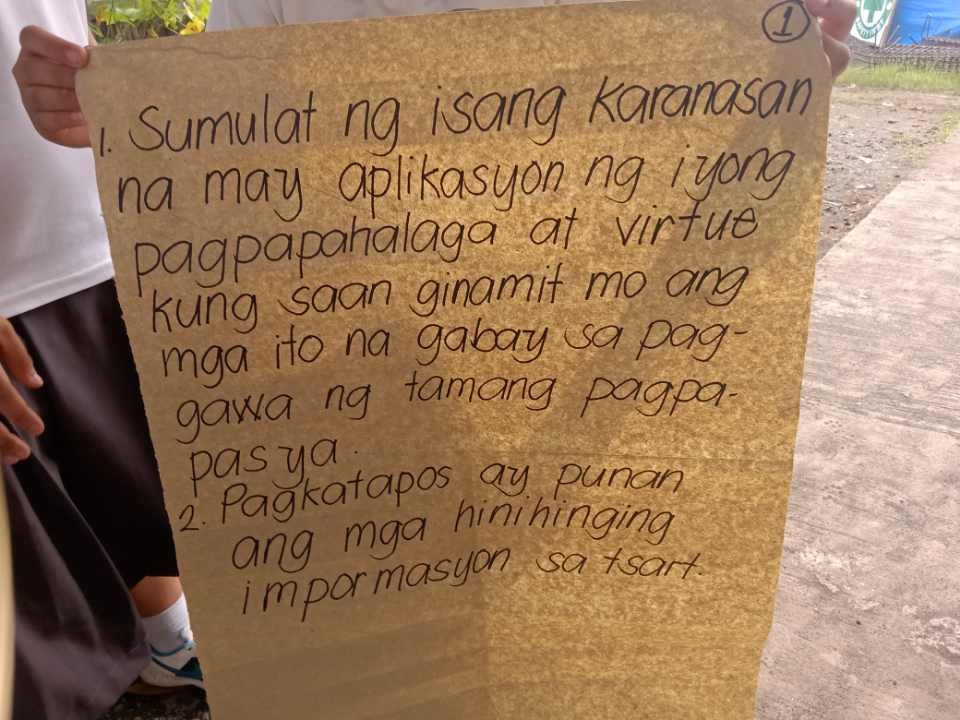 1
1. Sumulat ng isang karanasan
na may aplikasyon ng iyong
pagpapahalaga at virtue
kung saan ginamit mo ang
mga ito na gabay sa pag-
gawa ng tamang pagpa-
pasya.
2. Pagkatapos ay punan
ang mga hinihinging
impormasyon sa tsart.